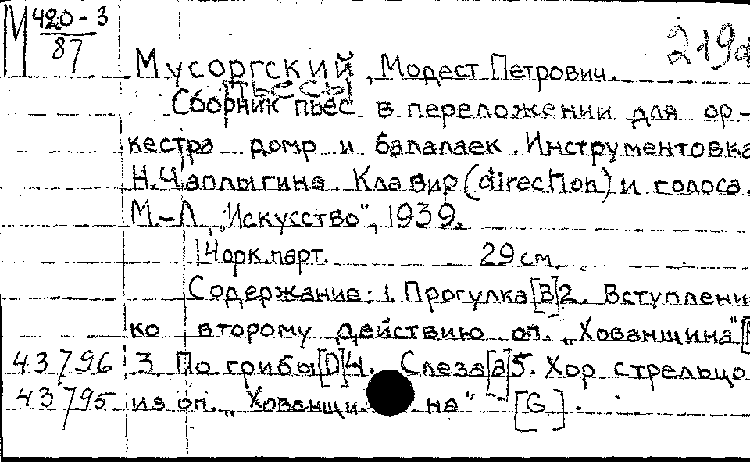 М 420-3 219
87
Мусоргский, Модест Петрович.
Пьесы
Сборник пьес в переложении для ор-
кестра домр и балалаек. Инструментовка
Н.Чаплыгина Клавир (direction) и голоса.
М.-Л, „Искусство", 1939.
14 орк.парт. 29 см
Содержание: 1. Прогулка [B] 2. Вступлени
ко второму действию оп. „Хованщина" [
43796 3. По грибы [D] 4. Слеза [a] 5. Хор стрельцо
43795 из оп. „Хованщина" [G].